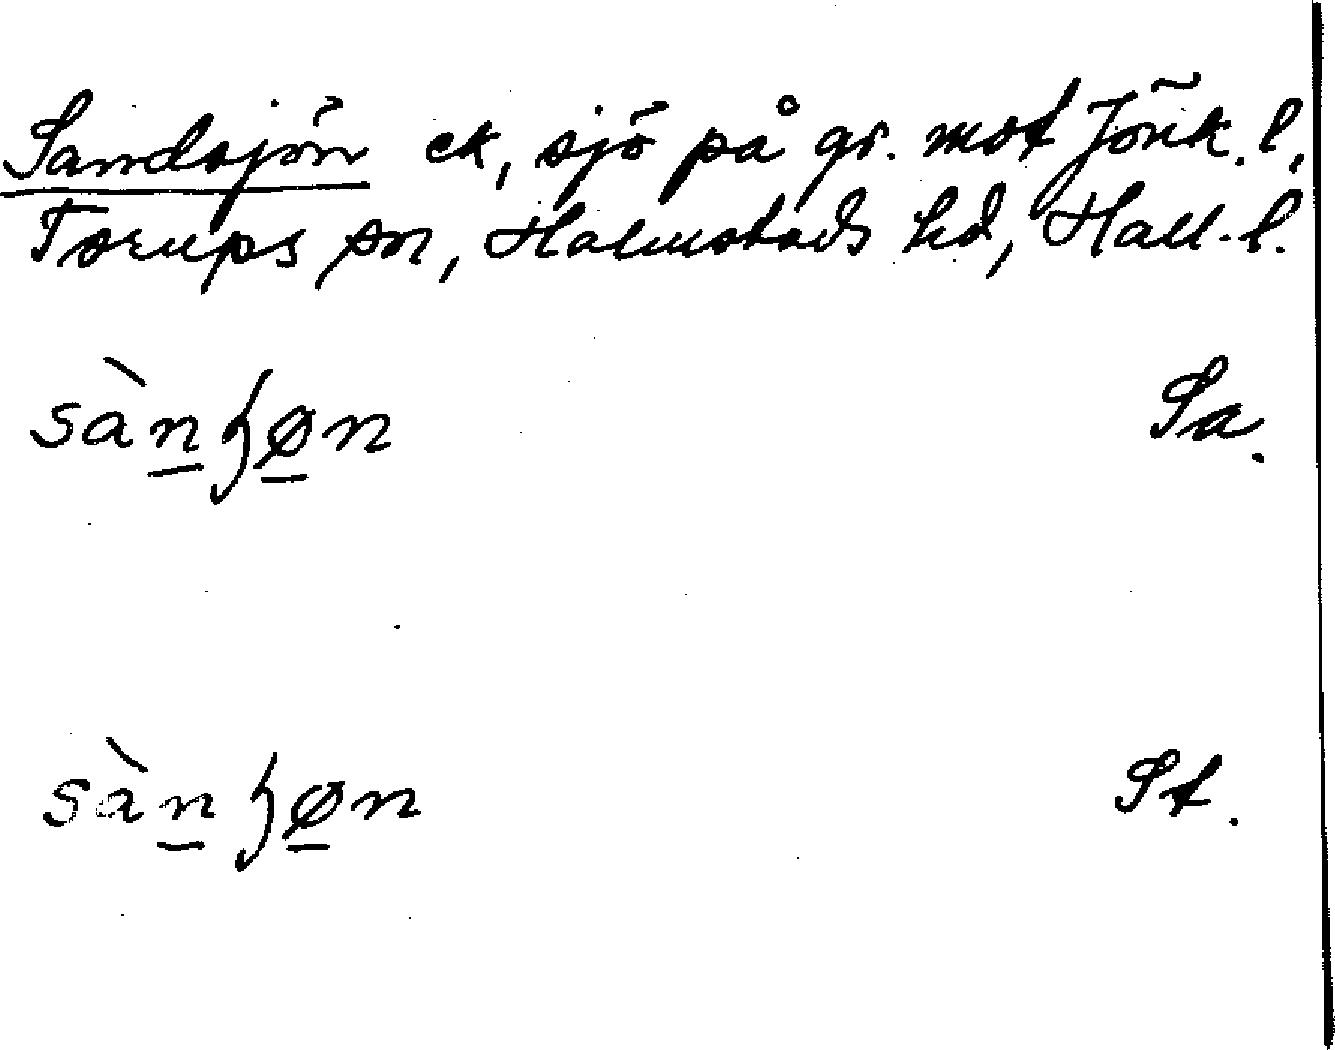 Sandsjön ek, sjö på gr. mot Jönk. l,
Torups sn, Halmstads hd, Hall. l.
sàn̲ɧø̲n Sa.
sàn̲ɧø̲n St.